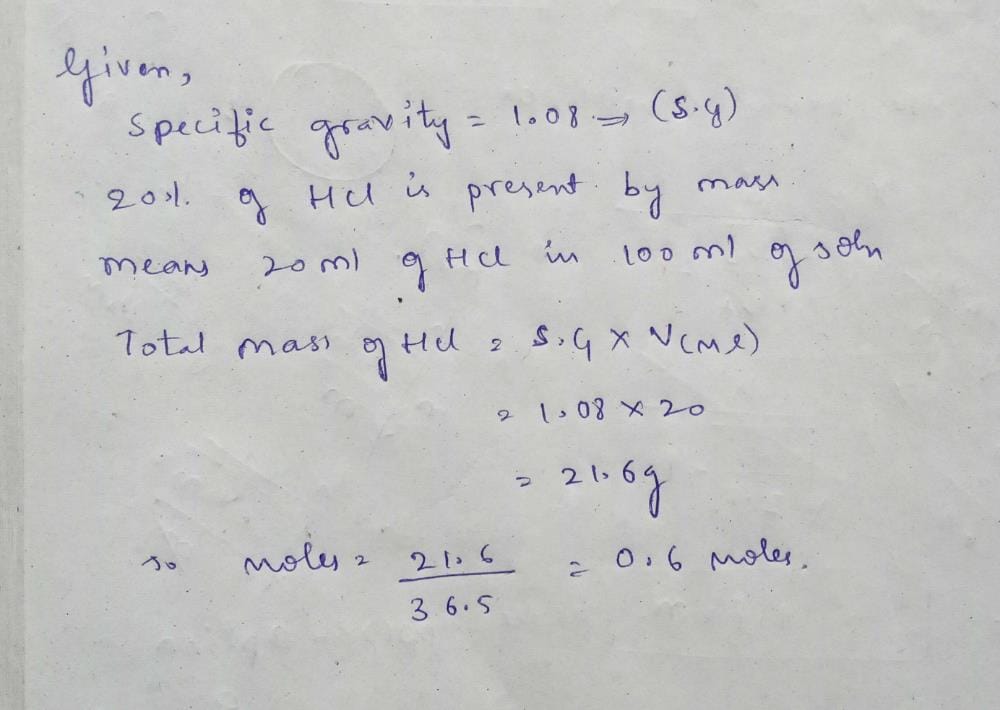 Given,
Specific gravity = 1.08 → (S.g)
20%. of HCl is present by mass
means 20 ml of HCl in 100 ml of soln
Total mass of HCl = S.G x V(Ml)
= 1.08 x 20
= 21.6g
so moles = 21.6 / 36.5 = 0.6 moles.